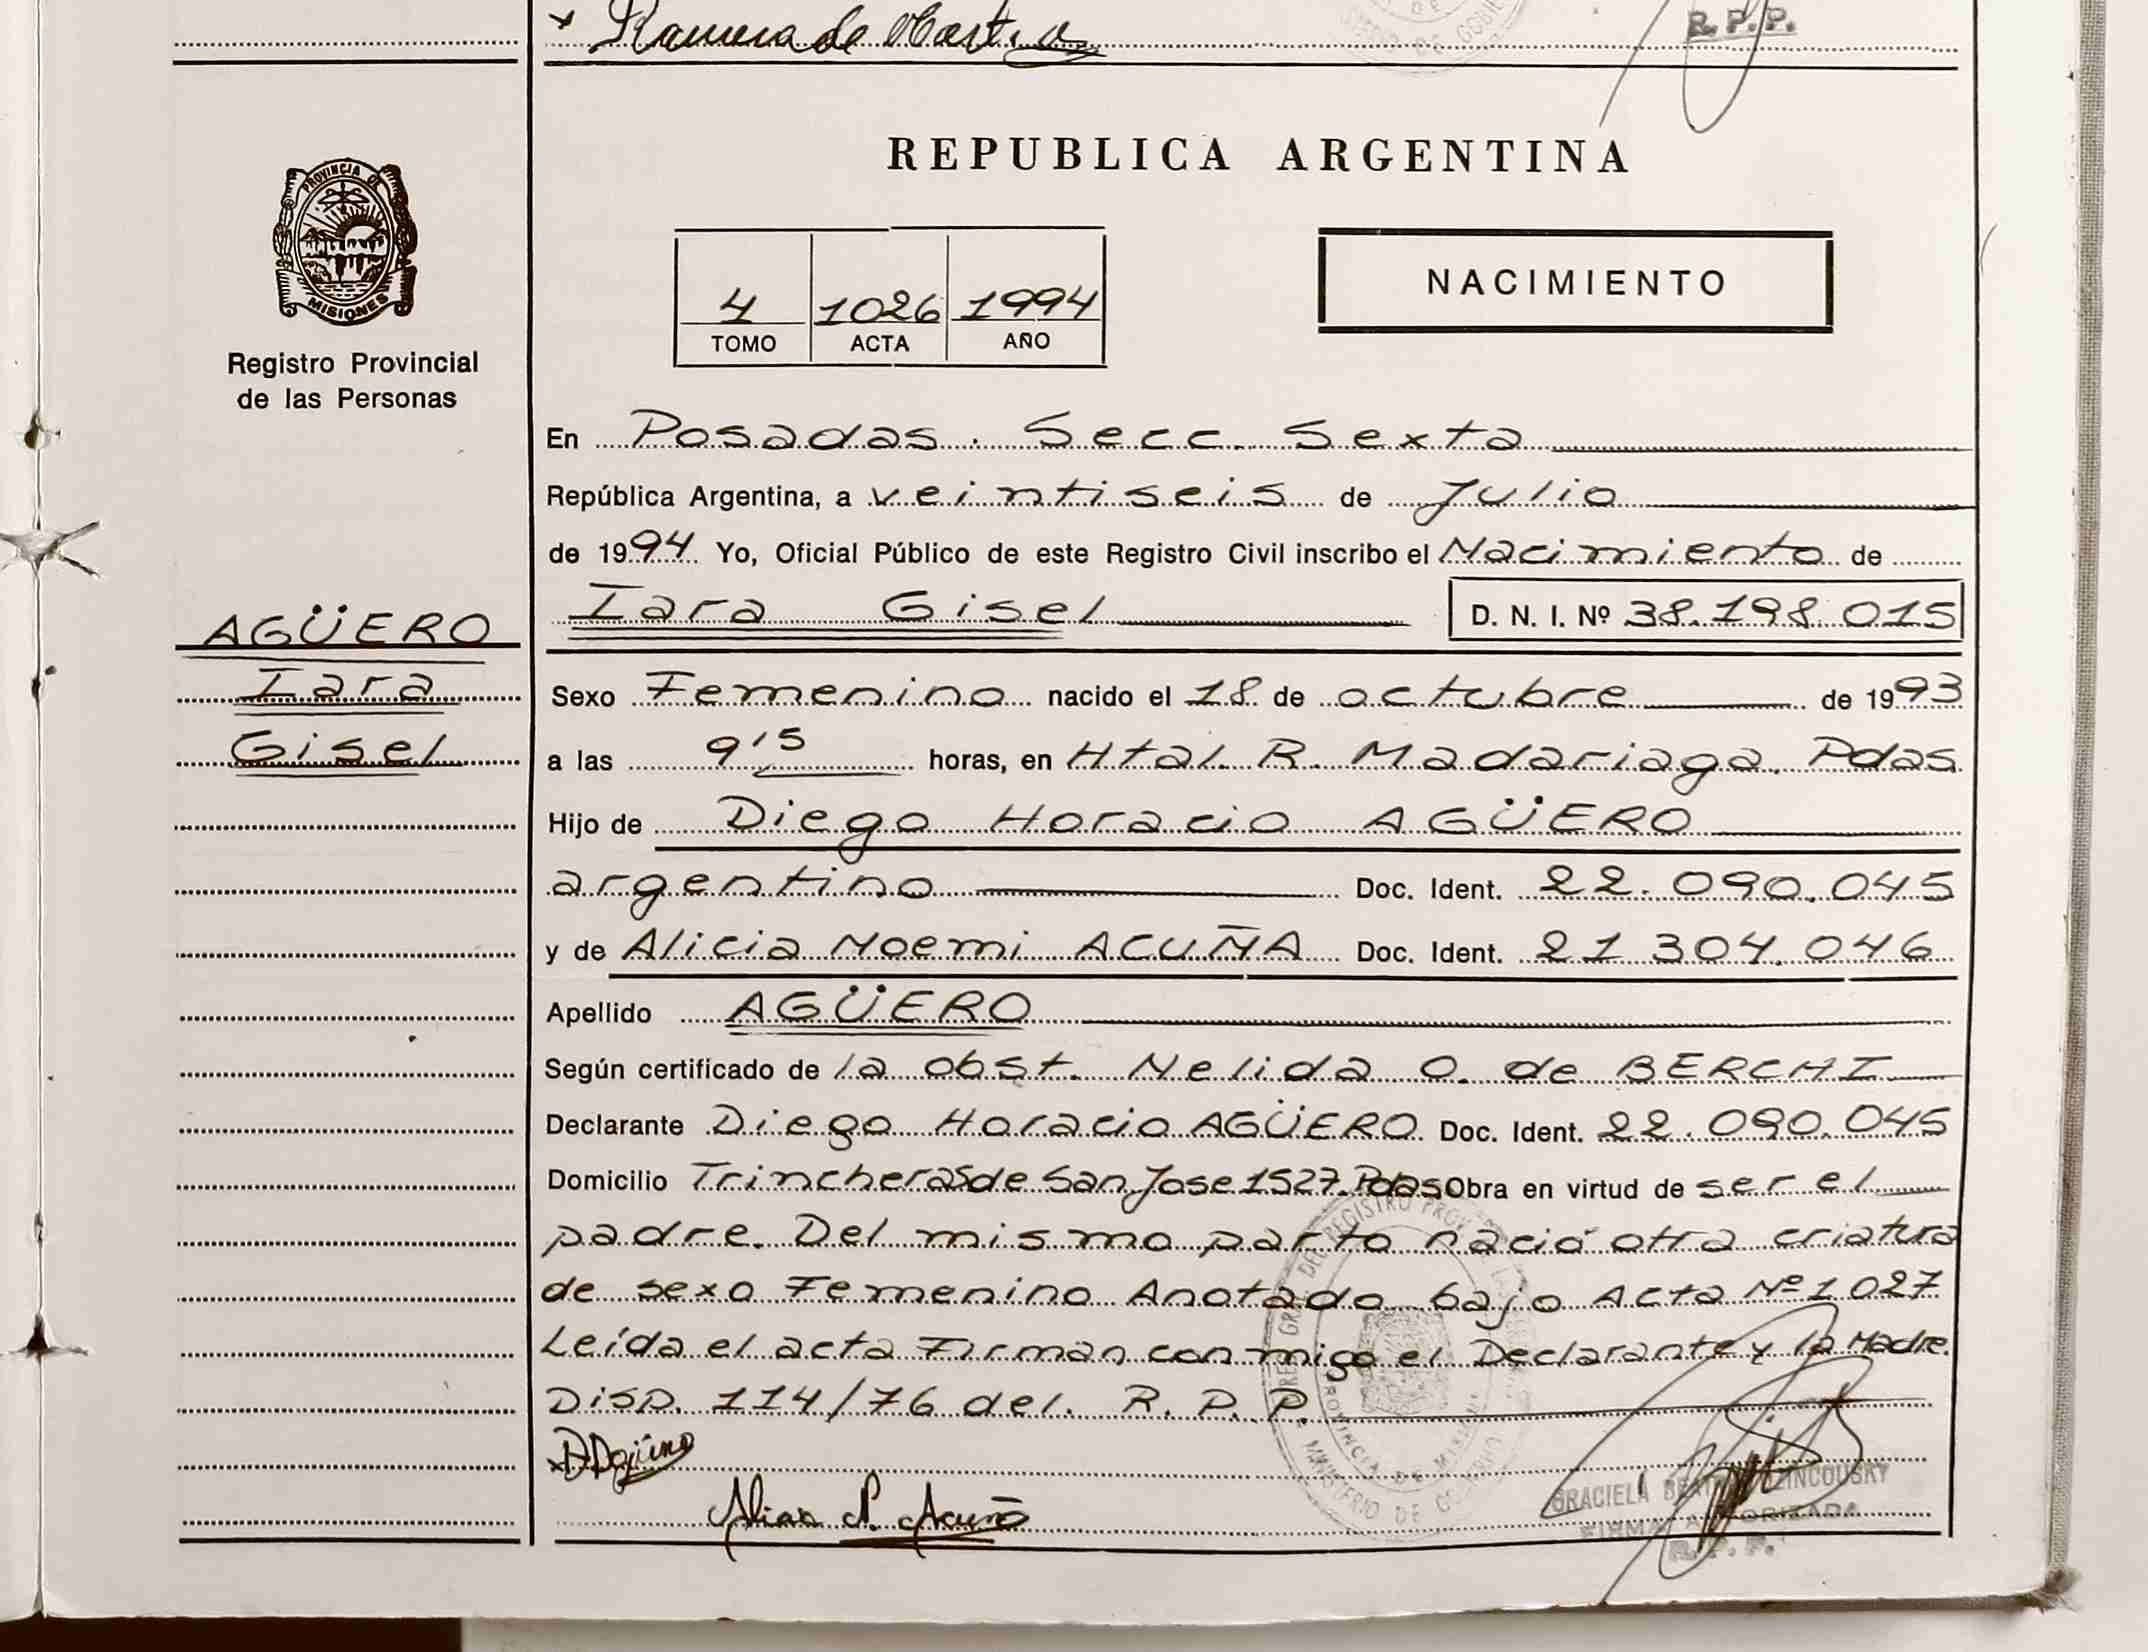 Ramona de
R. P. P.
REPUBLICA ARGENTINA
PROVINCIA DE
MISIONES
Registro Provincial
de las Personas
4 1026 1994
TOMO ACTA AÑO
NACIMIENTO
En Posadas. Secc. Sexta
República Argentina, a veintiseis de Julio
de 1994 Yo, Oficial Público de este Registro Civil inscribo el Nacimiento de
AGÜERO
Iara
Gisel
Iara Gisel D. N. I. Nº 38.198.015
Sexo Femenino nacido el 18 de octubre de 1993
a las 9 15 horas, en Htal. R. Madariaga. Pdas
Hijo de Diego Horacio AGÜERO
argentino Doc. Ident. 22.090.045
y de Alicia Noemi ACUÑA Doc. Ident. 21 304.046
Apellido AGÜERO
Según certificado de la obst. Nelida O. de BERCHI
Declarante Diego Horacio AGÜERO Doc. Ident. 22.090.045
Domicilio Trincheras de San Jose 1527. Pdas Obra en virtud de ser el
padre. Del mismo parto nació otra criatura
de sexo Femenino Anotado bajo Acta Nº 1027
Leída el acta Firman conmigo el Declarante y la Madre.
DISP. 114/76 del. R. P. P.
Alicia N. Acuña
GRACIELA
FIRMA AUTORIZADA
R. P. P.
MINISTERIO DE GOBIERNO
PROVINCIA DE MISIONES